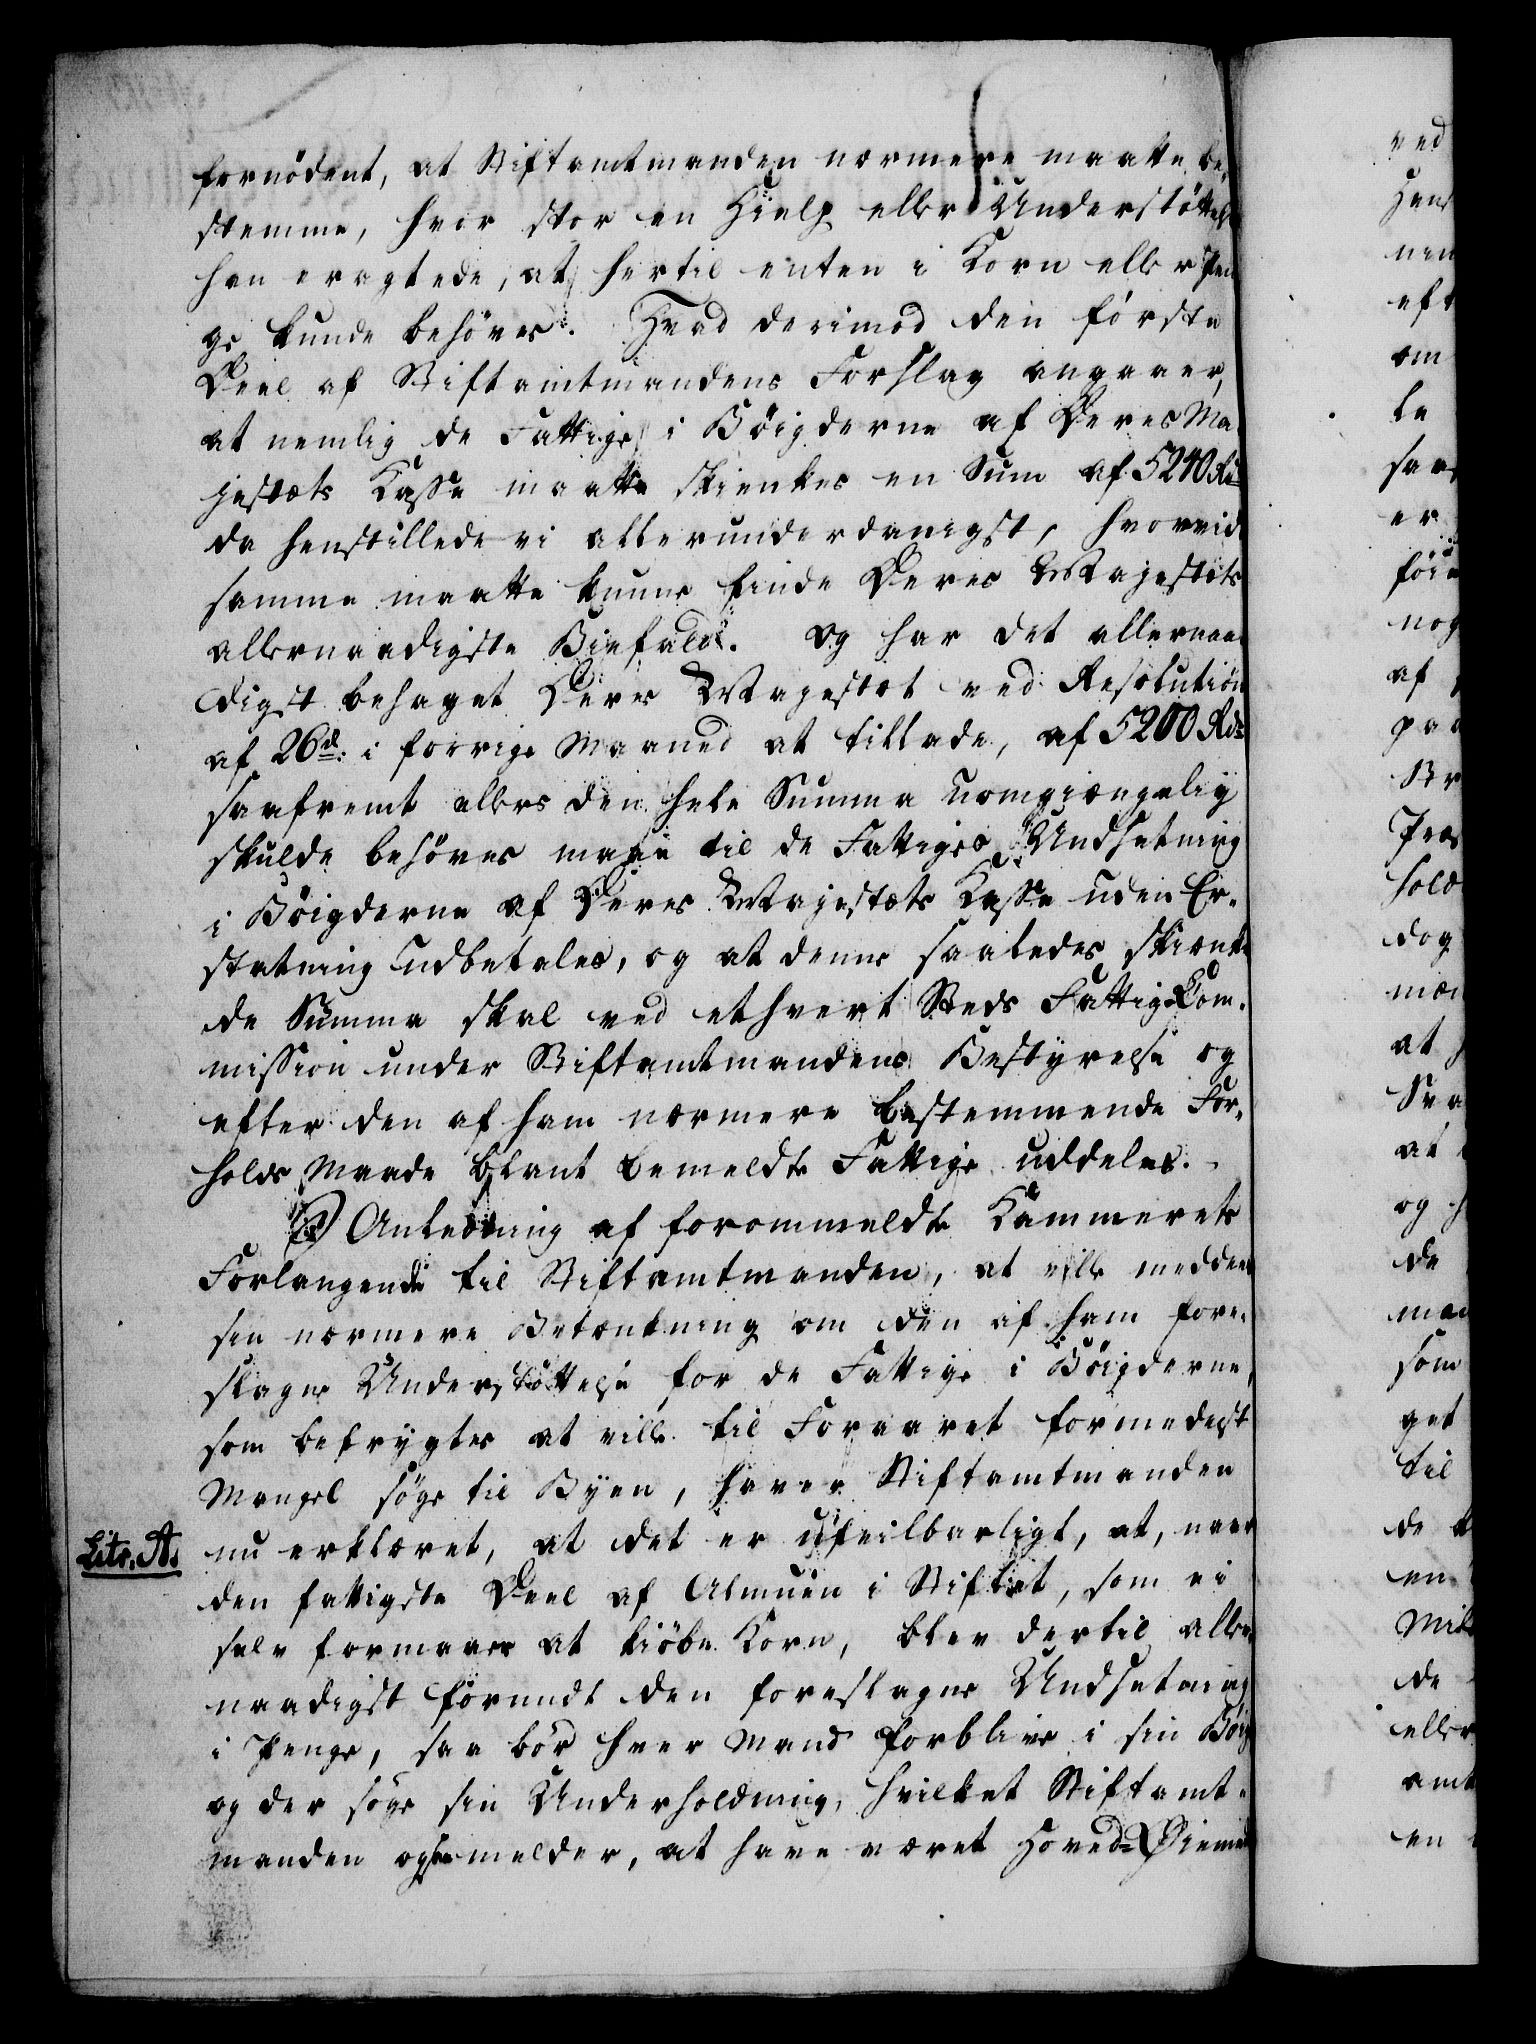 fornödent, at Stiftamtmanden nærmere maatte be,
stemme, hvor stor en Hielp eller Understöttelse
han eragtede, at hertil enten i Korn eller Pen
ge kunde behöves. Hvad derimod den förste
Deel af Stiftamtmandens Forslag angaaer,
at nemlig de Fattige i Böigderne af Deres Ma
jestæts Kasse maatte skienkes en Sum af 5240 Rd
da henstillede vi allerunderdanigst, hvorvidt
samme maatte kunne finde Deres Majestæts
allernaadigste Biefald. Og har det allernaa
digst behaget Deres Majestæt ved Resolution
af 26d: i forrige Maaned at tillade, af 5200 Rd
saafremt ellers den hele Summa uomgiængelig
skulde behöves maae til de Fattiges Undsætning
i Böigderne af Deres Majestæts Kasse uden Er,
statning udbetales, og at denne saaledes skiænke
de Summa skal ved ethvert Steds Fattig-Com,
mission under Stiftamtmandens Bestyrelse og
efter den af ham nærmere bestemmende For,
holds Maade blant bemeldte Fattige uddeles.
I Anledning af forommeldte Kammerets
Forlangende til Stiftamtmanden, at ville meddele
sin nærmere Betænkning om den af ham fore,
slagne Understöttelse for de Fattige i Böigderne,
som befrygtes at ville til Foraaret formedelst
Mangel söge til Byen, haver Stiftamtmanden
Litr. A.
nu erklæret, at det er ufeilbarligt, at, naar
den fattigste Deel af Almuen i Stiftet, som ei
selv formaaer at kiöbe Korn, blev dertil aller,
naadigst forundt den foreslagne Undsætning
i Penge, saa bör hver Mand forblive i sin Böig
og der söge sin Underholdning, hvilket Stiftamt,
manden ogsaa melder, at have været Hoved-Öiemed
ved
nen
eft
om
te
saa
er
nog
af
paa
hold
dog
at
Sva
at
og
de
som
get
til
de
en
de
eller
amt
en